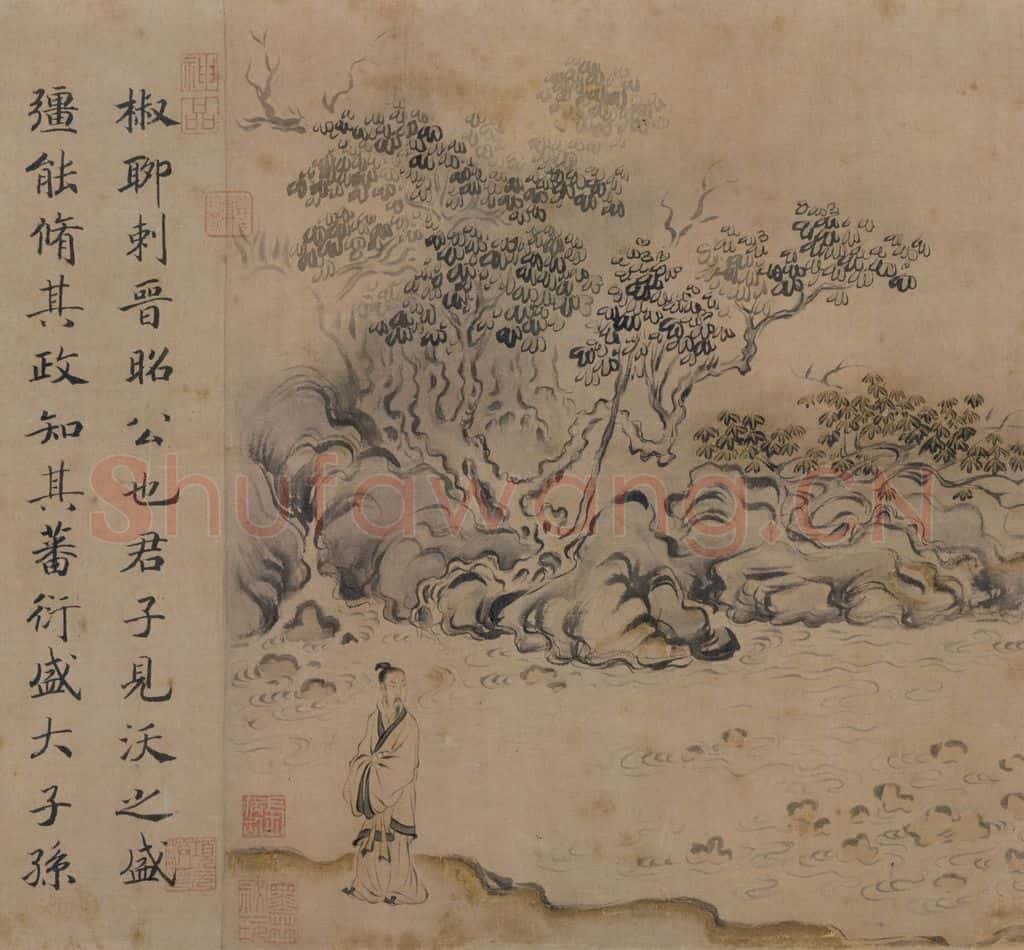 椒聊刺晉昭公也君子見沃之盛
彊能脩其政知其蕃衍盛大子孫
神品
Shufawang.CN